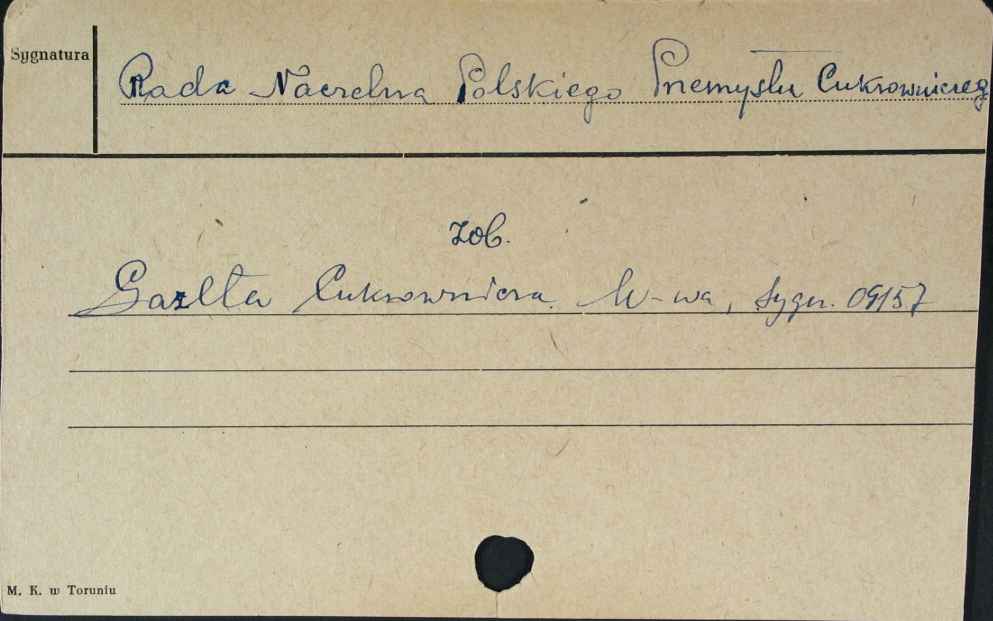 Sygnatura
Rada Naczelna Polskiego Przemysłu Cukrowniczeg
zob.
Gazeta Cukrownicza. W-wa, sygn. 09157
M. K. w Toruniu